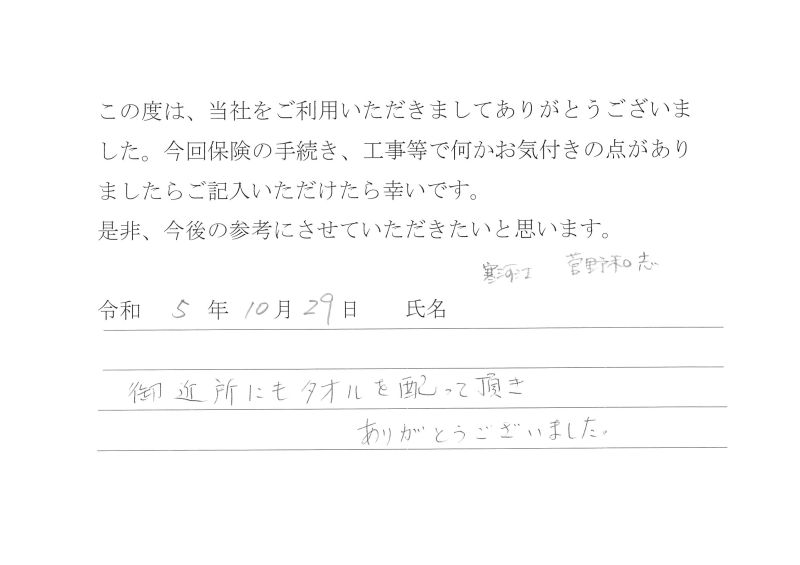 この度は、当社をご利用いただきましてありがとうございま
した。今回保険の手続き、工事等で何かお気付きの点があり
ましたらご記入いただけたら幸いです。
是非、今後の参考にさせていただきたいと思います。
寒河江 菅野和志
令和 5 年 10 月 29 日 氏名
御近所にもタオルを配って頂き
ありがとうございました。